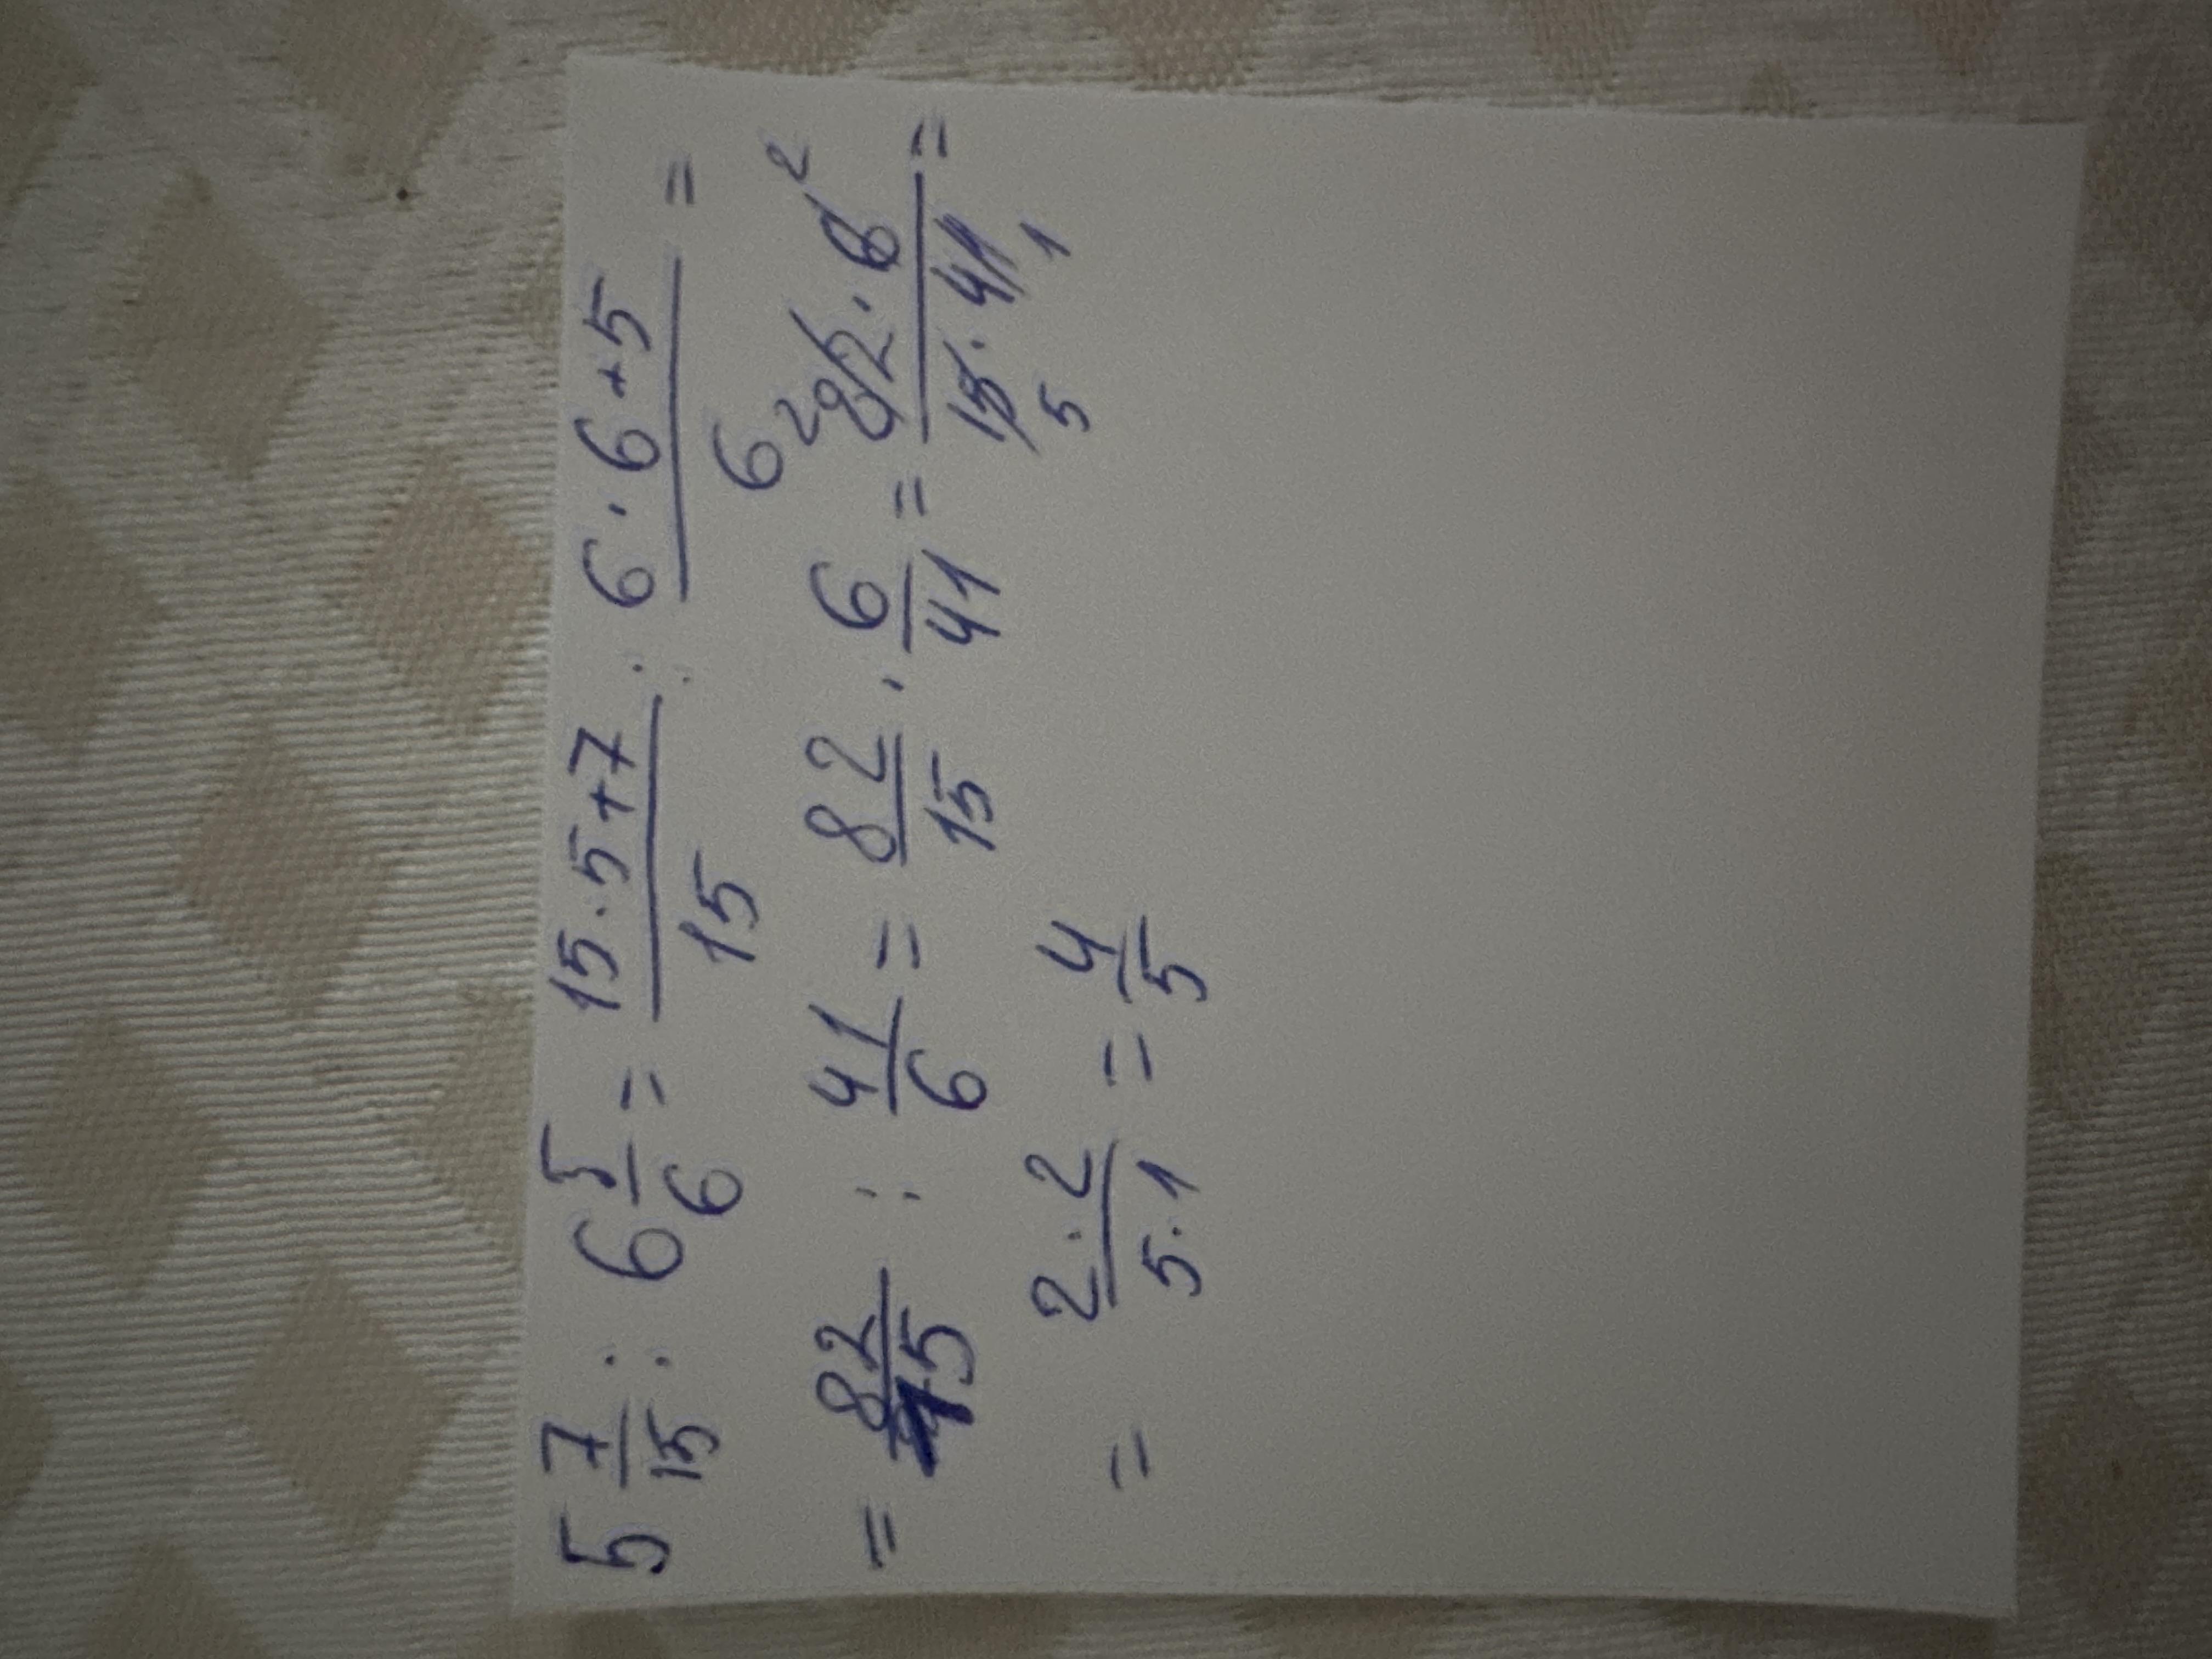 5 7/15 : 6 5/6 = (15·5+7)/15 : (6·6+5)/6 =
= 82/15 : 41/6 = 82/15 · 6/41 = (82·6)/(15·41) = 2 2 5 1
= (2·2)/(5·1) = 4/5